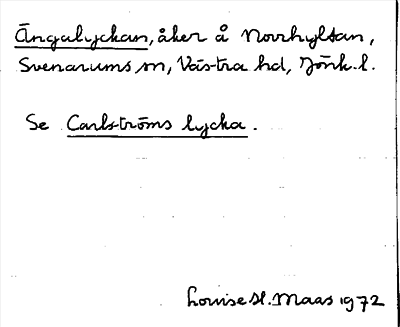 Ängalyckan, åker å Norrhyltan,
Svenarums sn, Västra hd, Jönk. l.
Se Carlströms lycka.
Louise H. Maas 1972